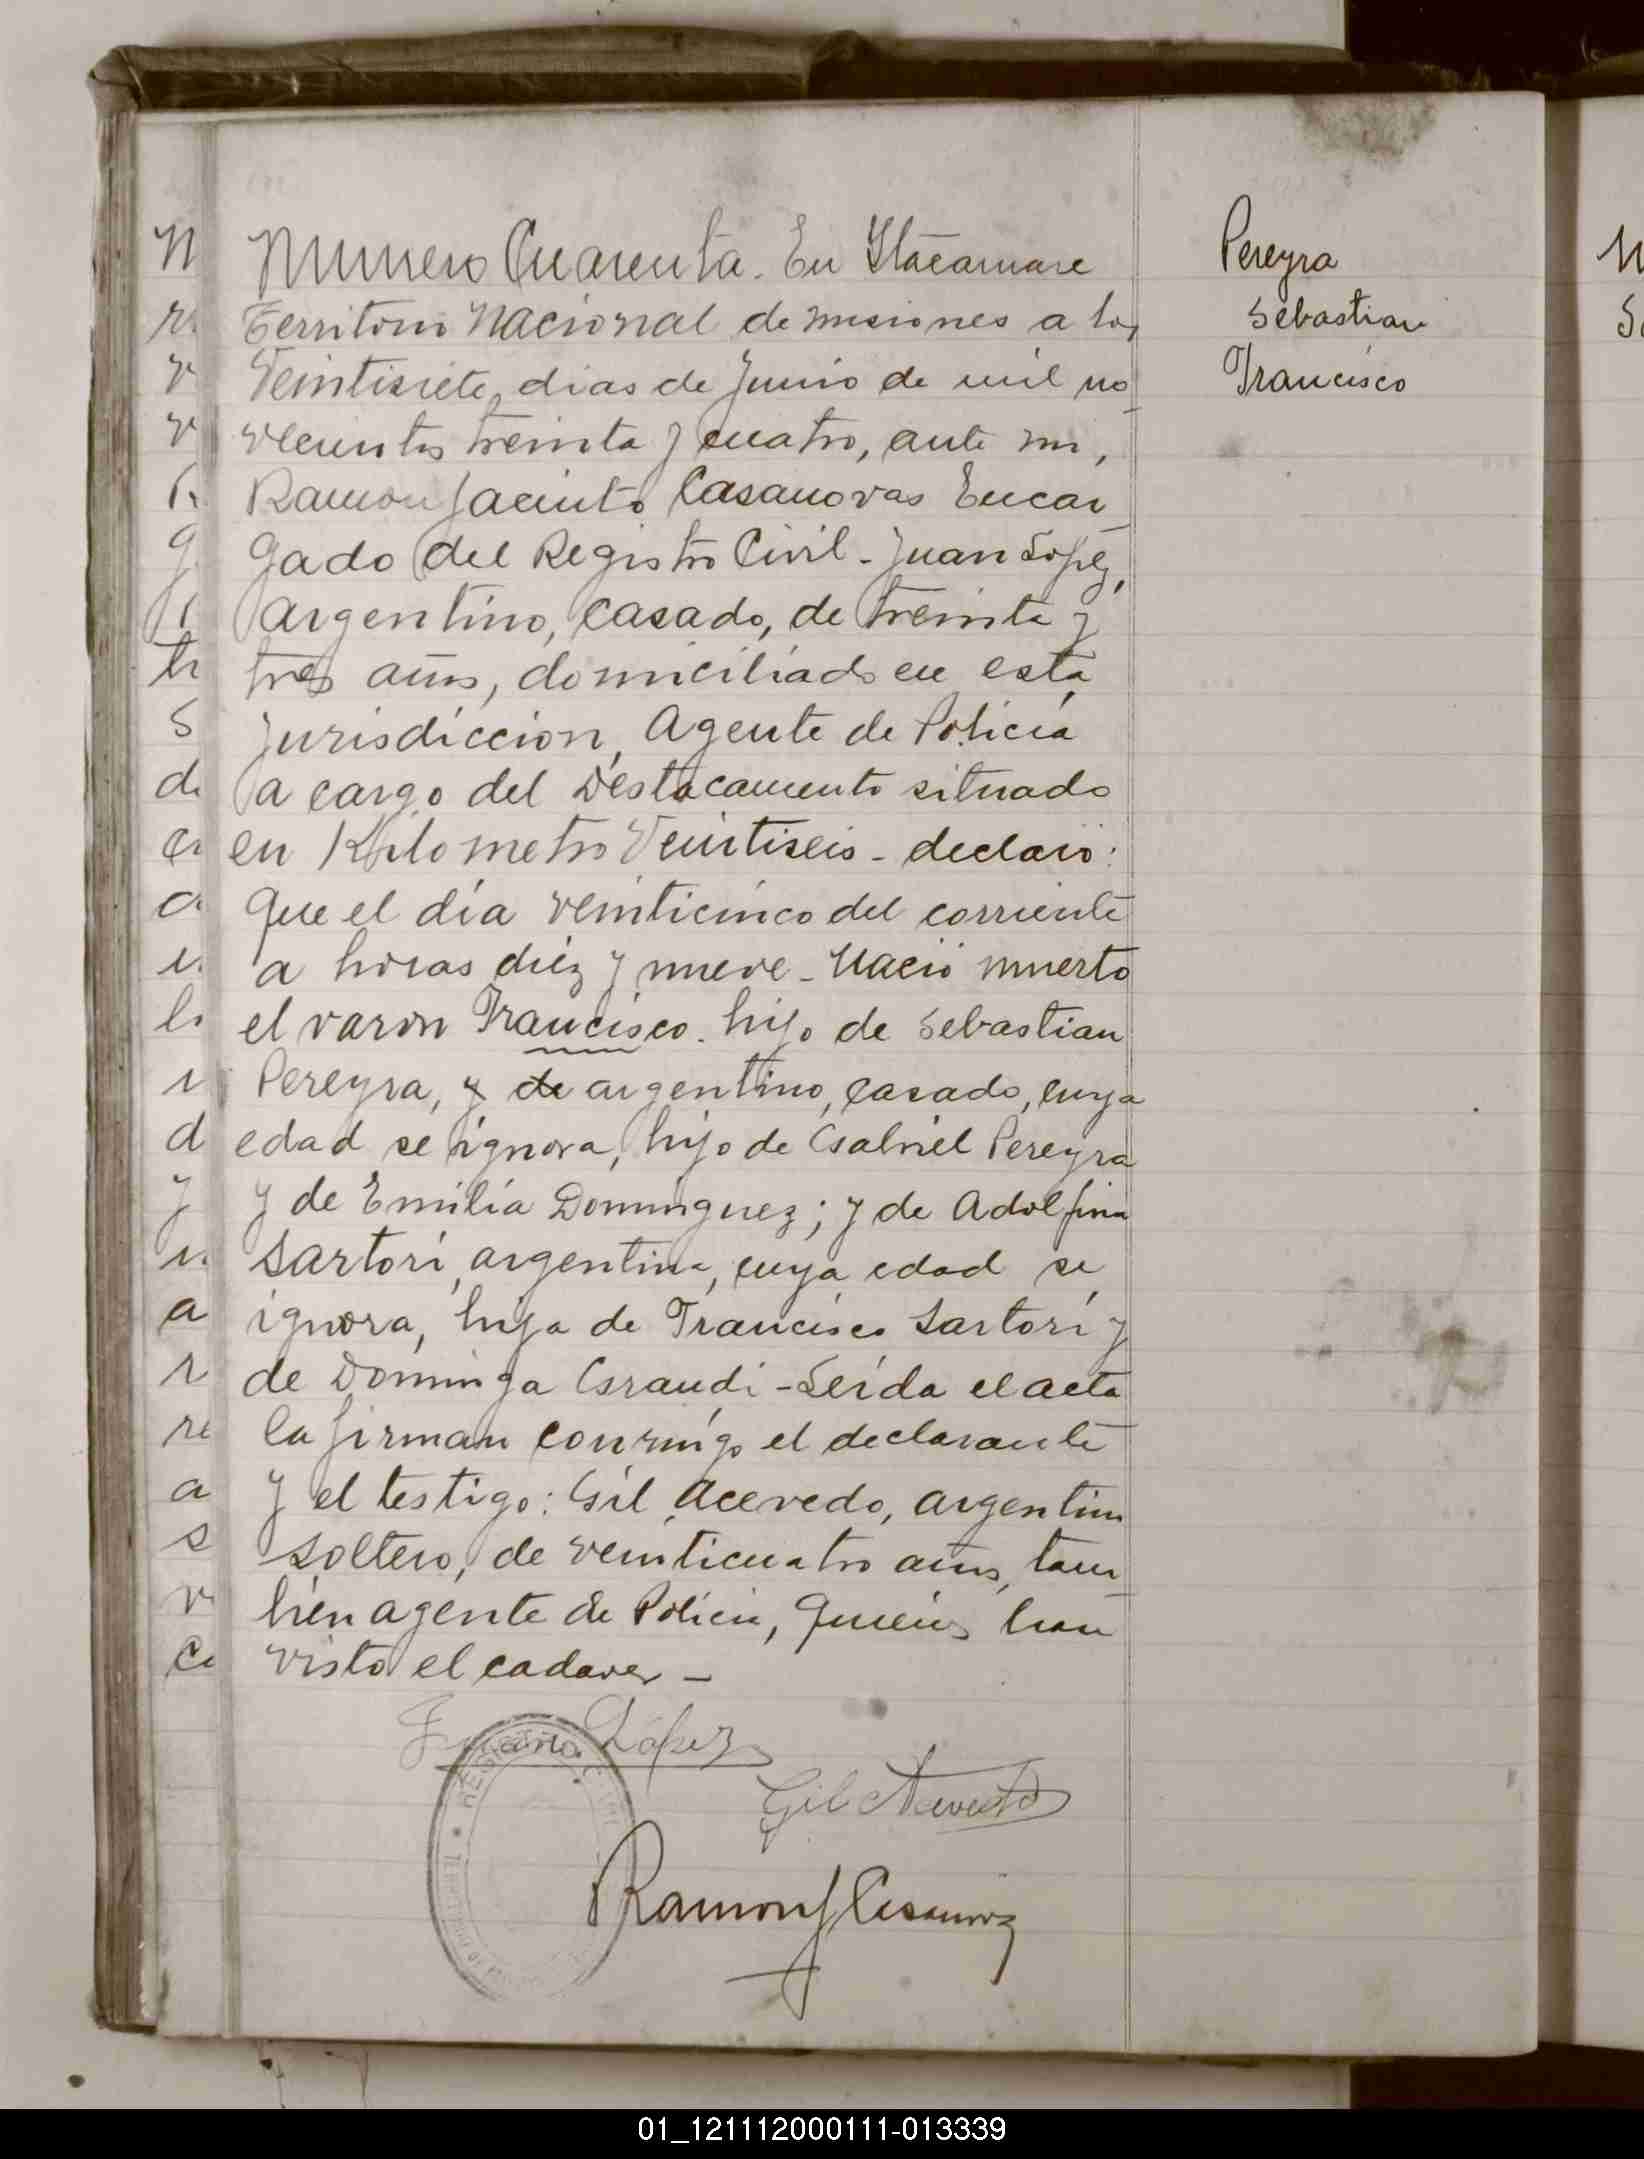 Numero Cuarenta. En Itacaruare
Territorio Nacional de misiones a los
Veintisiete, dias de Junio de mil no
vecientos treinta y cuatro, ante mi,
Ramon Jacinto Casanovas Encar
gado del Registro Civil - Juan López,
argentino, casado, de treinta y
tres años, domiciliado en esta
Jurisdiccion, Agente de Policía
a cargo del Destacamento situado
en Kilometro Veintiseis - declaró:
Que el día veinticinco del corriente
a horas diéz y nueve - Nació muerto
el varon Francisco. hijo de Sebastian
Pereyra, y de argentino, casado, cuya
edad se ignora, hijo de Gabriel Pereyra
y de Emilia Dominguez; y de Adolfina
Sartori, argentina, cuya edad se
ignora, hija de Francisco Sartori y
de Dominga Graudi - Leída el acta
la firman conmigo el declarante
y el testigo: Gil Acevedo, argentino
soltero, de veinticuatro años, tam
bién agente de Policia, quienes han
visto el cadaver -
Juan López
Gil Acevedo
Ramon J Casanovas
REGISTRO CIVIL
TERRITORIO DE
Pereyra
Sebastian
Francisco
01_121112000111-013339